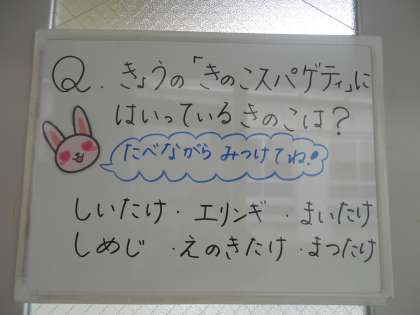 Q. きょうの「きのこスパゲティ」に
はいっているきのこは？
たべながら みつけてね!
しいたけ・エリンギ・まいたけ
しめじ・えのきたけ・まつたけ